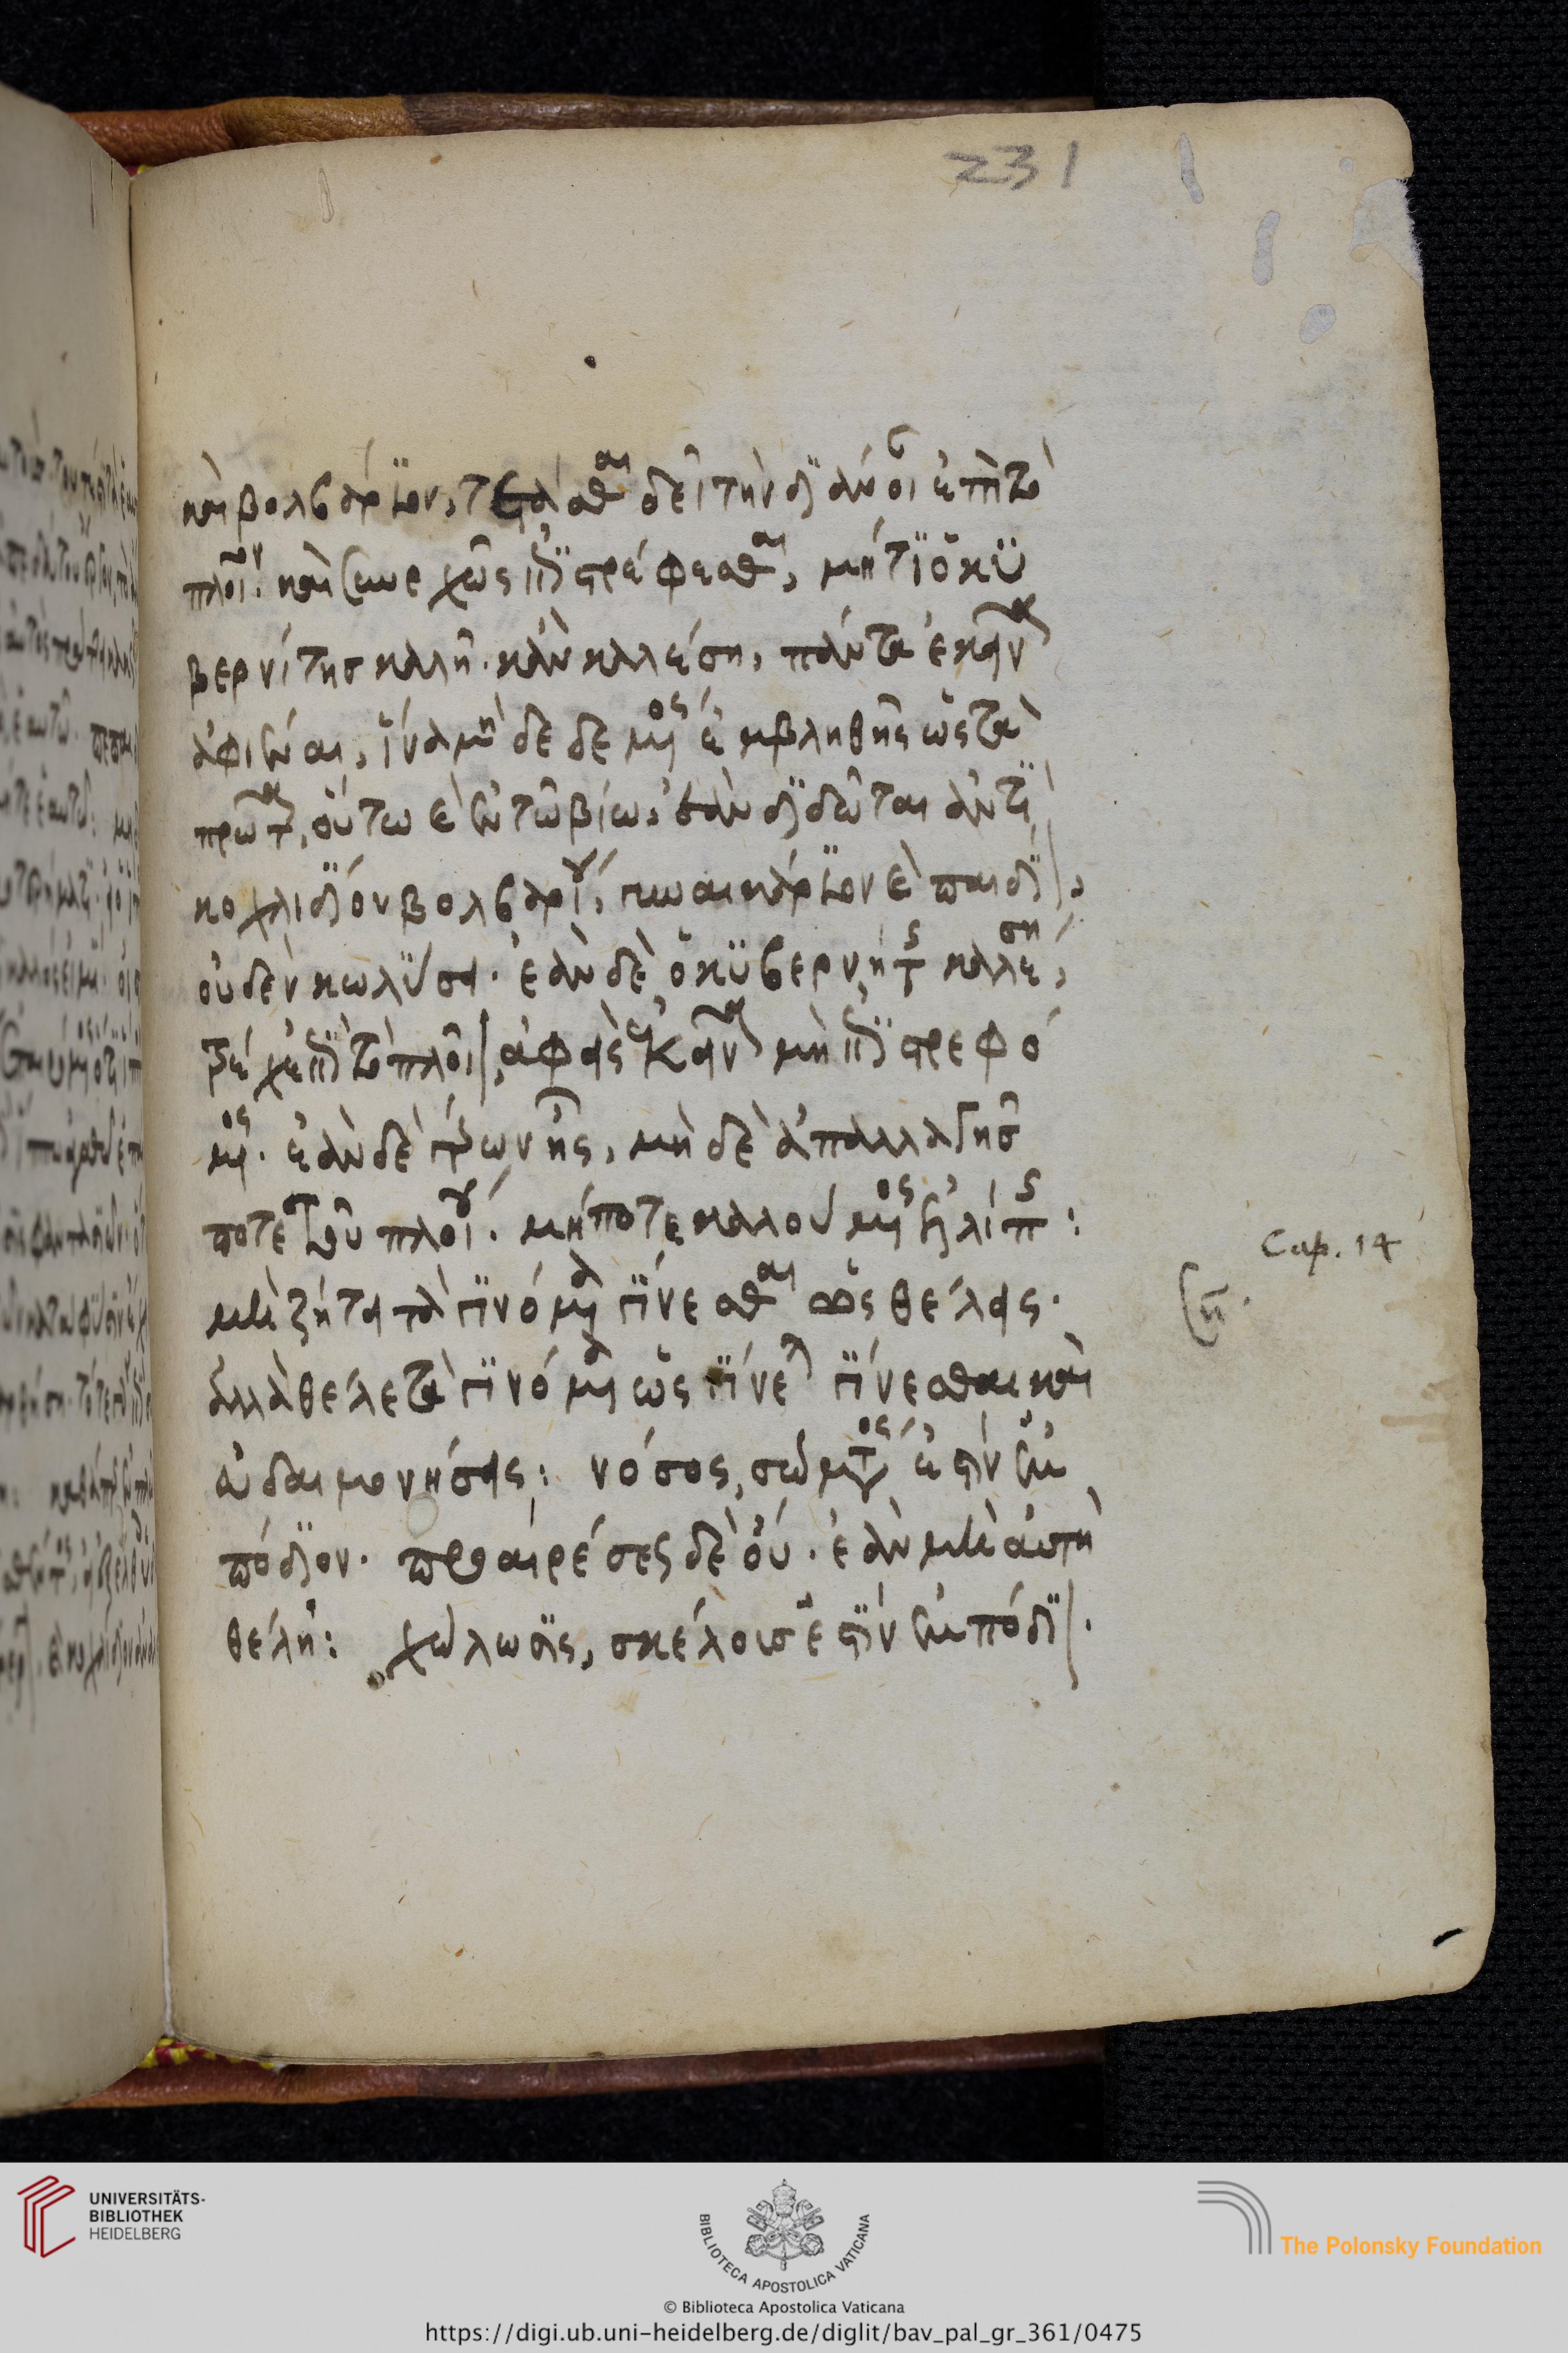 231
καὶ βολβάριον, τετάσθαι δεῖ τὴν διάνοιαν ἐπὶ τὸ
πλοῖον. καὶ συνεχῶς ἐπιστρέφεσθαι, μήτι ὁ κυ
βερνίτης καλῇ. κἂν καλέση, πάντα ἐκεῖνα
ἀφιέναι, ἵνα μὴ δεδεμένος ἐμβληθῇς ὡς τὰ
πρόβατα, οὕτω καὶ ἐν τῷ βίω, ἐὰν διδῶται ἀντὶ
κοχλιδίου βολβαρίου, γυναικάριον καὶ παιδίον,
οὐδὲν κωλύσει. ἐὰν δὲ ὁ κυβερνήτης καλέση,
τρέχε ἐπὶ τὸ πλοῖον, ἀφεὶς ἐκεῖνα μὴ ἐπιστρεφό
μενος. ἐὰν δὲ γέρων ᾖς, μὴ δὲ ἀπαλλαγῇς
ποτὲ τοῦ πλοίου. μήποτε καλουμένος ἐλλίπης:
μὴ ζήτει τὰ γινόμενα γίνεσθαι ὡς θέλεις.
ἀλλὰ θέλε τὰ γινόμενα ὡς γίνεται γίνεσθαι καὶ
εὐδαιμονήσεις: νόσος, σώματος ἐστὶν ἐμ
πόδιον. προαιρέσεως δὲ οὐ. ἐὰν μὴ αὐτὴ
θέλη: χώλωσις, σκέλους ἐστὶν ἐμπόδιον.
Cap. 14
UNIVERSITÄTS-
BIBLIOTHEK
HEIDELBERG
BIBLIOTECA APOSTOLICA VATICANA
The Polonsky Foundation
© Biblioteca Apostolica Vaticana
https://digi.ub.uni-heidelberg.de/diglit/bav_pal_gr_361/0475